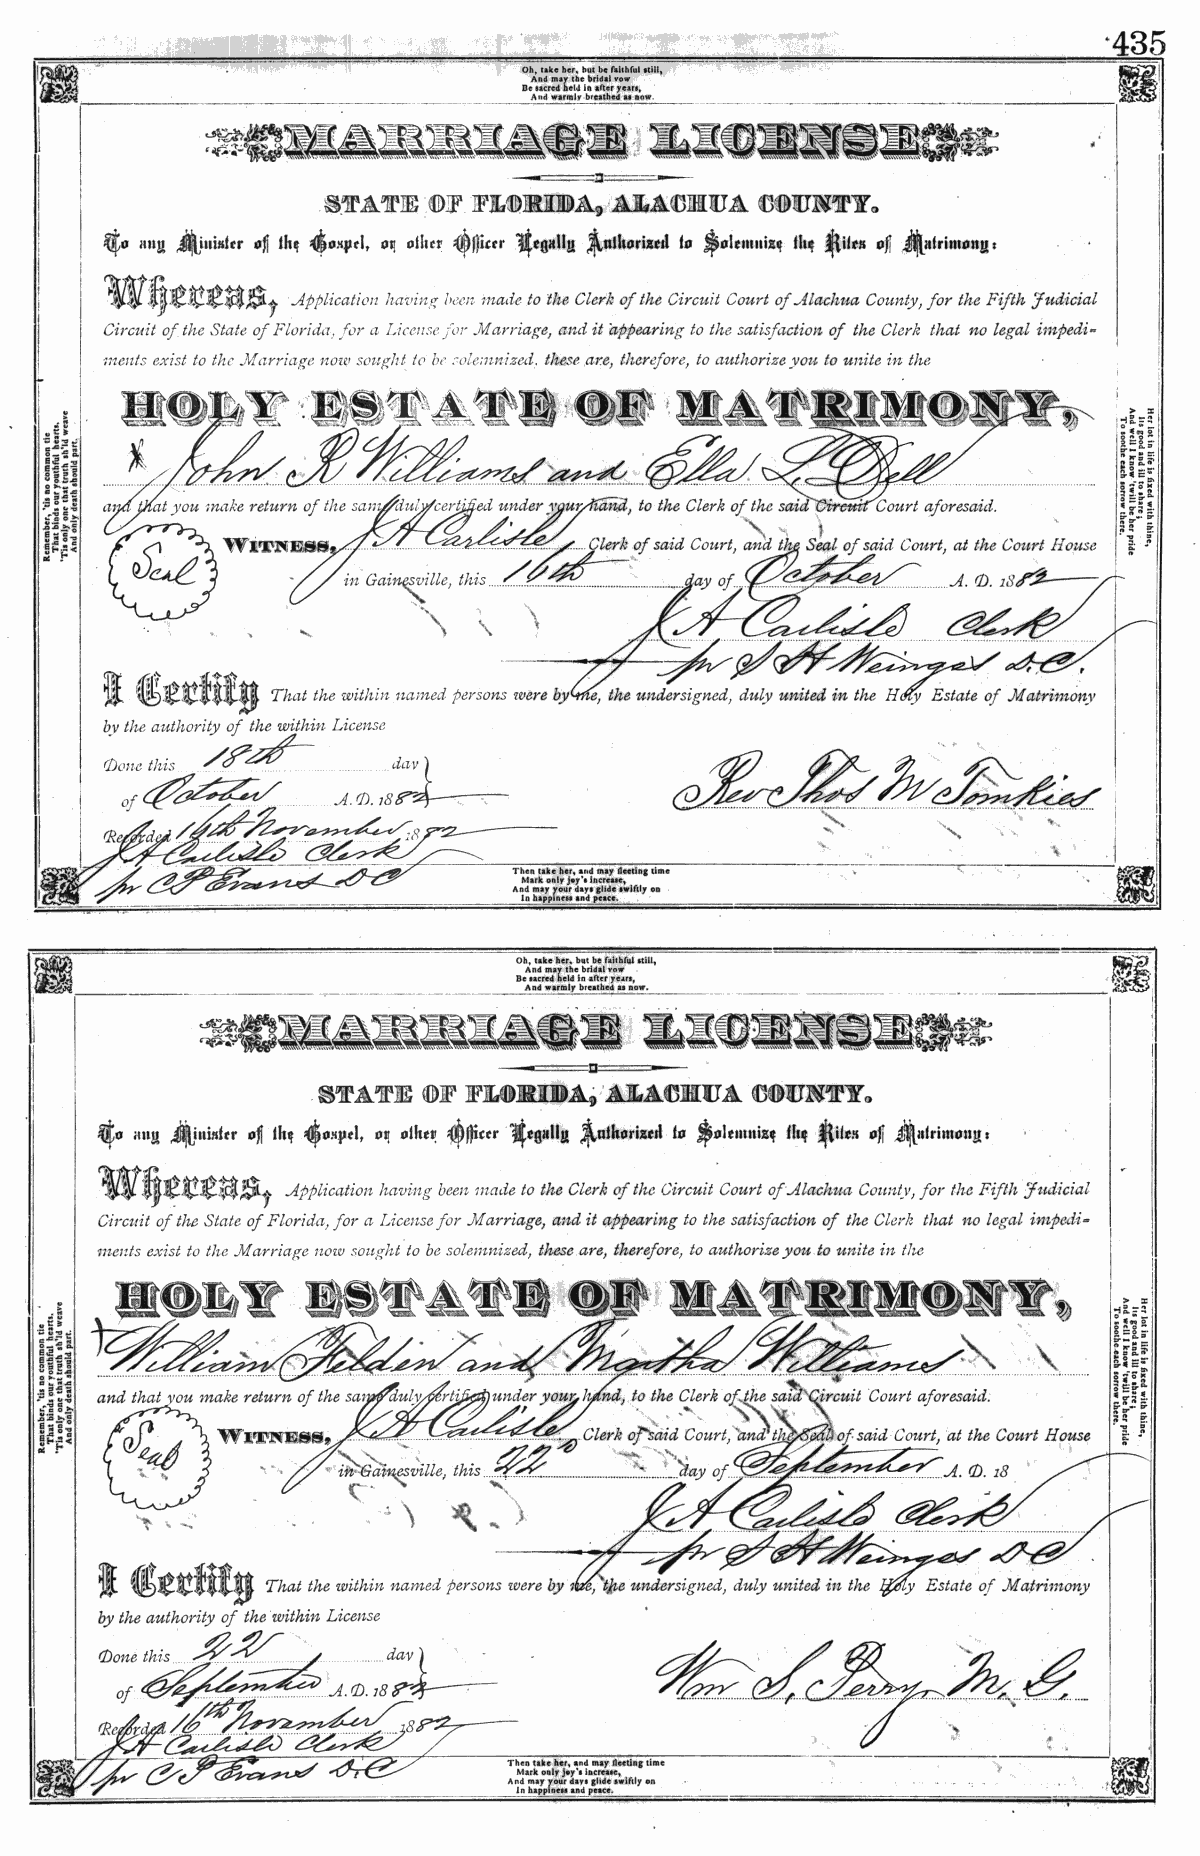 435
Oh, take her, but be faithful still,
And may the bridal vow
Be sacred held in after years,
And warmly breathed as now.
MARRIAGE LICENSE
STATE OF FLORIDA, ALACHUA COUNTY.
To any Minister of the Gospel, or other Officer Legally Authorized to Solemnize the Rites of Matrimony:
Whereas, Application having been made to the Clerk of the Circuit Court of Alachua County, for the Fifth Judicial
Circuit of the State of Florida, for a License for Marriage, and it appearing to the satisfaction of the Clerk that no legal impedi-
ments exist to the Marriage now sought to be solemnized, these are, therefore, to authorize you to unite in the
HOLY ESTATE OF MATRIMONY,
John R Williams and Ella L. Dell
and that you make return of the same duly certified under your hand, to the Clerk of the said Circuit Court aforesaid.
Seal
WITNESS, J A Carlisle Clerk of said Court, and the Seal of said Court, at the Court House
in Gainesville, this 16th day of October A. D. 1882
J A Carlisle Clerk
pr S H Wienges D.C.
I Certify That the within named persons were by me, the undersigned, duly united in the Holy Estate of Matrimony
by the authority of the within License
Done this 18th day
of October A.D. 1882
Rev Thos W Tomkies
Recorded 16th November 1882
J A Carlisle Clerk
pr C P Evans D C
Remember, 'tis no common tie
That binds our youthful hearts.
'Tis only one that truth sh'ld weave
And only death should part.
Her lot in life is fixed with thine,
Its good and ill to share;
And well I know 'twill be her pride
To soothe each sorrow there.
Then take her, and may fleeting time
Mark only joy's increase,
And may your days glide swiftly on
In happiness and peace.
Oh, take her, but be faithful still,
And may the bridal vow
Be sacred held in after years,
And warmly breathed as now.
MARRIAGE LICENSE
STATE OF FLORIDA, ALACHUA COUNTY.
To any Minister of the Gospel, or other Officer Legally Authorized to Solemnize the Rites of Matrimony:
Whereas, Application having been made to the Clerk of the Circuit Court of Alachua County, for the Fifth Judicial
Circuit of the State of Florida, for a License for Marriage, and it appearing to the satisfaction of the Clerk that no legal impedi-
ments exist to the Marriage now sought to be solemnized, these are, therefore, to authorize you to unite in the
HOLY ESTATE OF MATRIMONY,
William Felden and Martha Williams
and that you make return of the same duly certified under your hand, to the Clerk of the said Circuit Court aforesaid.
Seal
WITNESS, J A Carlisle Clerk of said Court, and the Seal of said Court, at the Court House
in Gainesville, this 22d day of September A. D. 18
J A Carlisle Clerk
pr S H Wienges D C
I Certify That the within named persons were by me, the undersigned, duly united in the Holy Estate of Matrimony
by the authority of the within License
Done this 22 day
of September A.D. 1882
Wm S. Perry, M. G.
Recorded 16th November 1882
J A Carlisle Clerk
pr C P Evans D.C
Remember, 'tis no common tie
That binds our youthful hearts.
'Tis only one that truth sh'ld weave
And only death should part.
Her lot in life is fixed with thine,
Its good and ill to share;
And well I know 'twill be her pride
To soothe each sorrow there.
Then take her, and may fleeting time
Mark only joy's increase,
And may your days glide swiftly on
In happiness and peace.